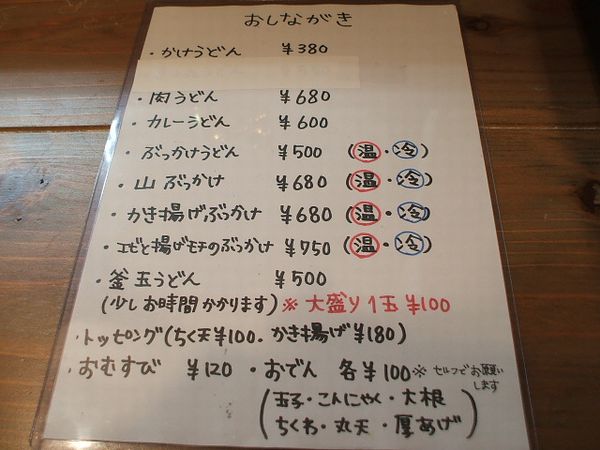 おしながき
・かけうどん ¥380
・肉うどん ¥680
・カレーうどん ¥600
・ぶっかけうどん ¥500 (温・冷)
・山ぶっかけ ¥680 (温・冷)
・かき揚げぶっかけ ¥680 (温・冷)
・エビと揚げモチのぶっかけ ¥750 (温・冷)
・釜玉うどん ¥500
(少しお時間かかります) ※大盛り1玉 ¥100
・トッピング(ちく天¥100.かき揚げ¥180)
・おむすび ¥120 ・おでん 各¥100 ※セルフでお願いします
(玉子・こんにゃく・大根
ちくわ・丸天・厚あげ)